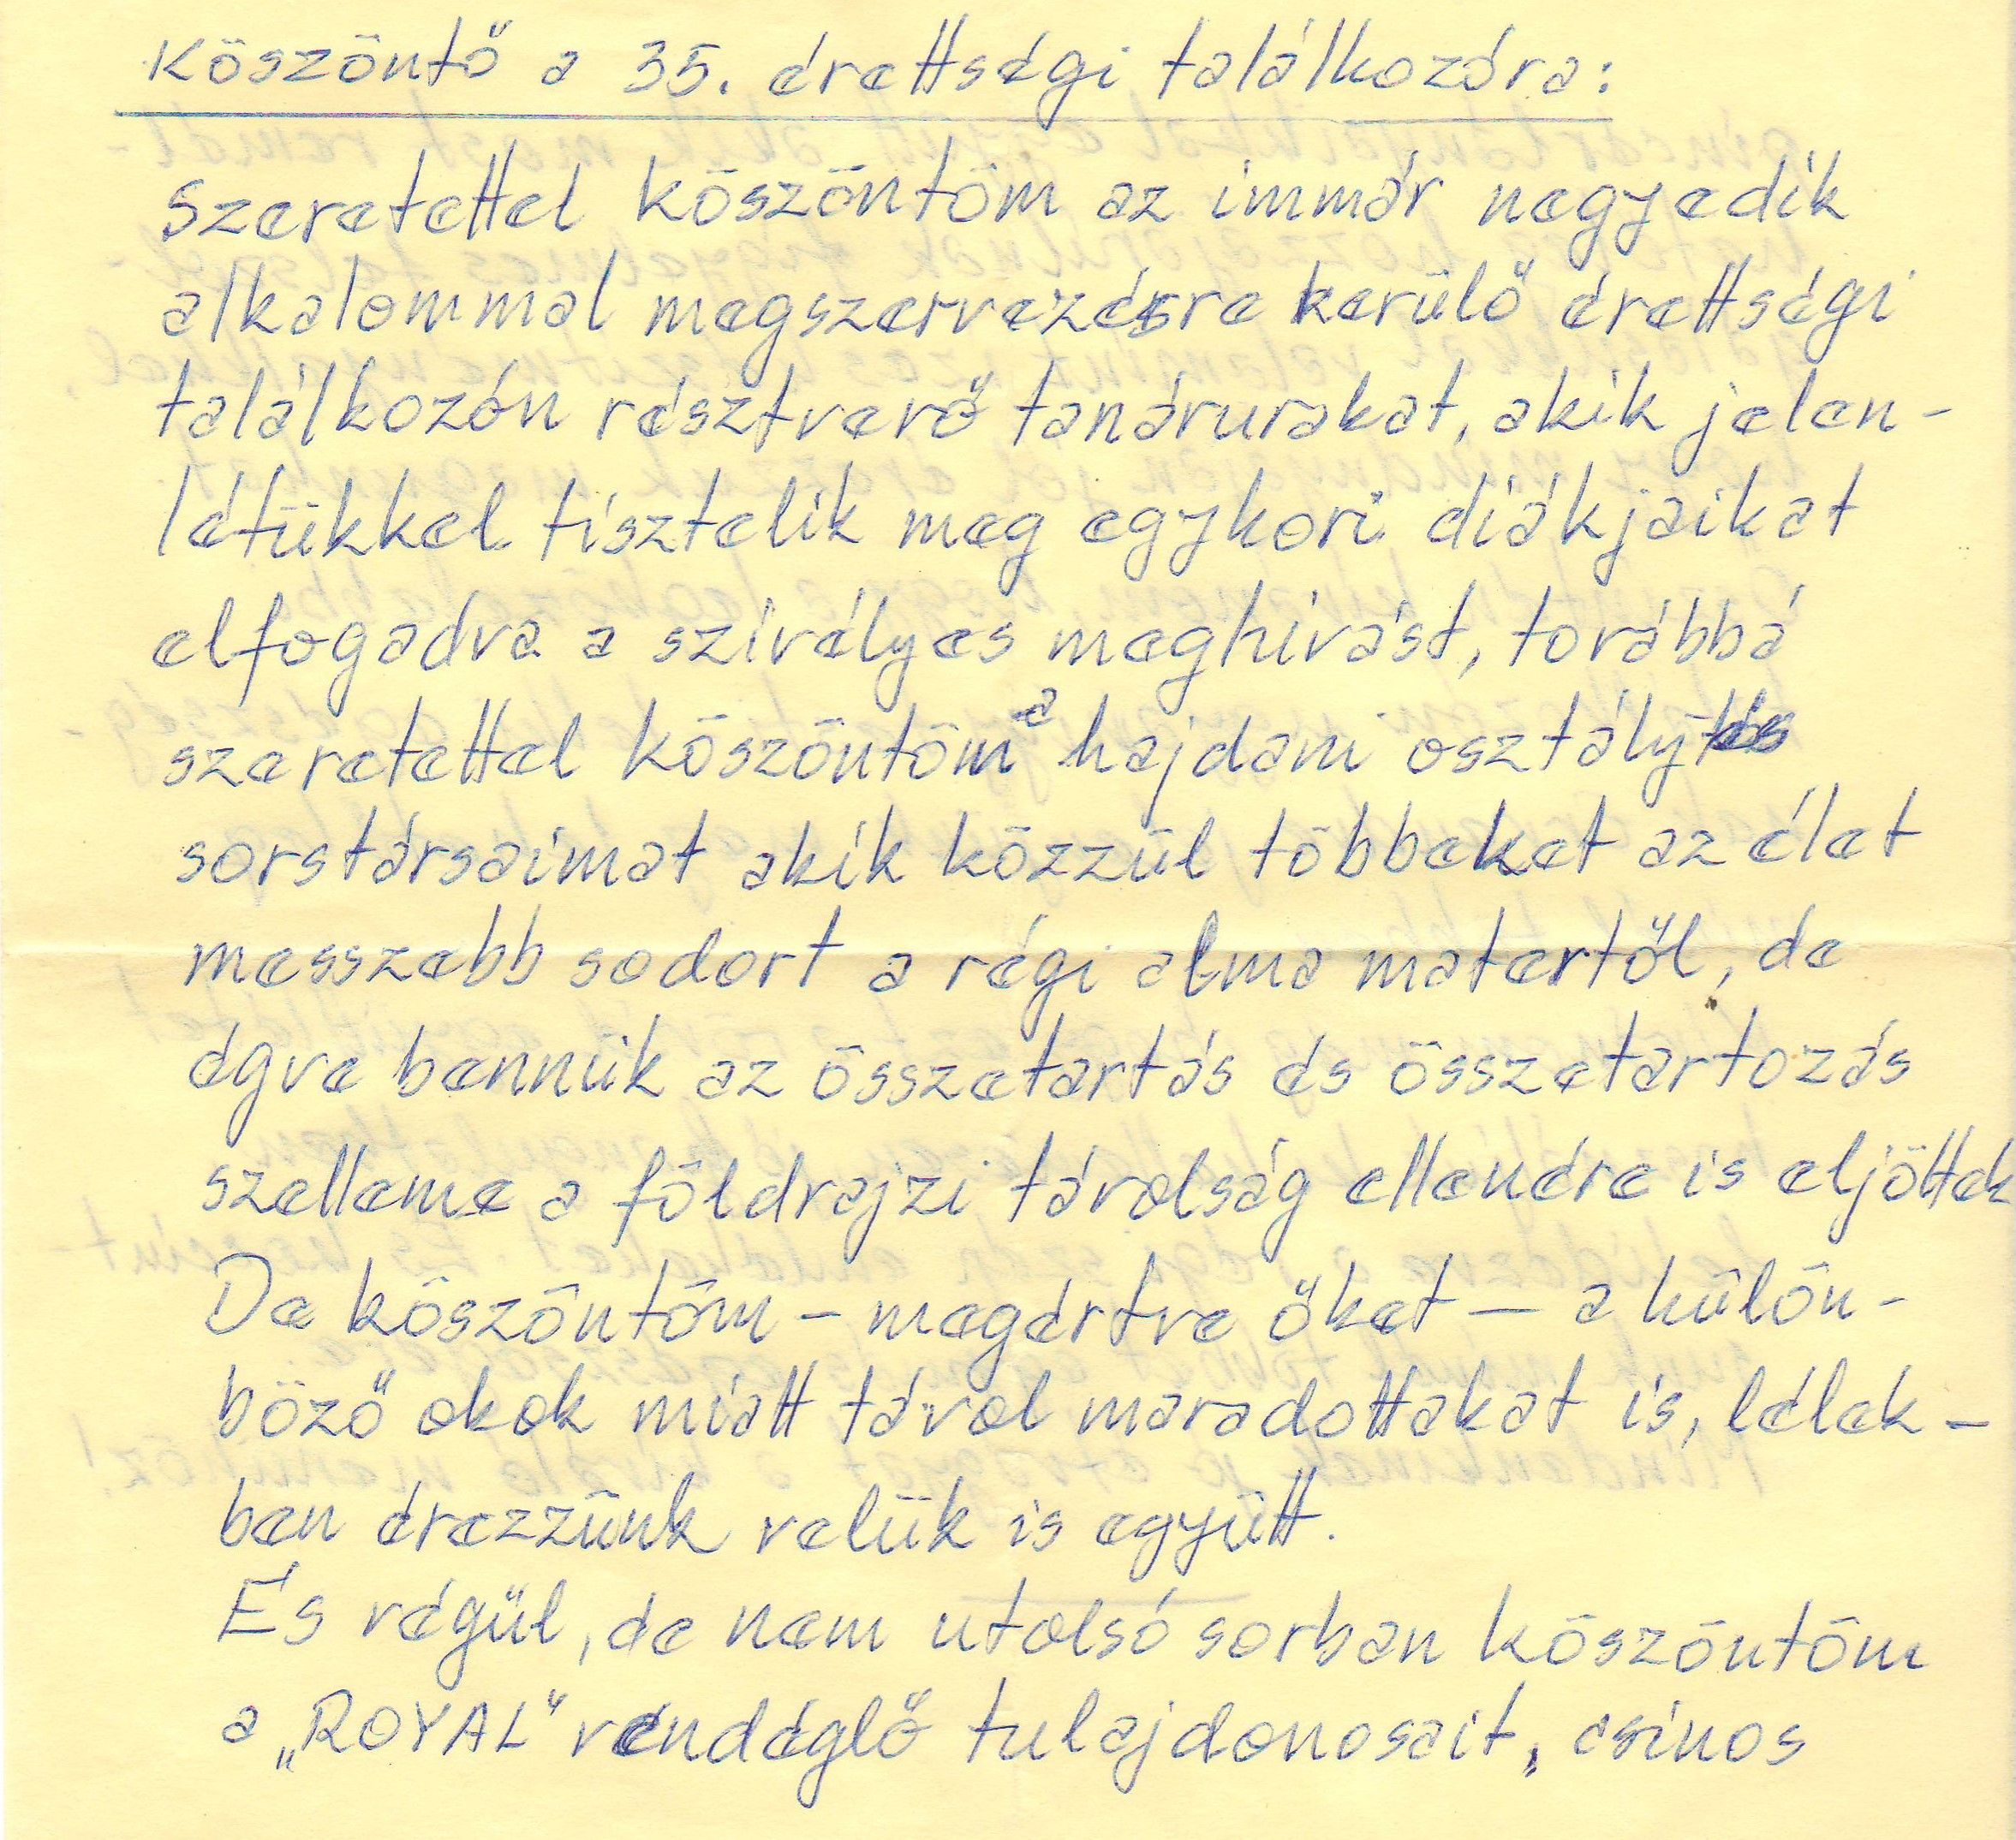 Köszöntő a 35. érettségi találkozóra:
Szeretettel köszöntöm az immár negyedik
alkalommal megszervezésre kerülő érettségi
találkozón résztvevő tanárurakat, akik jelen-
létükkel tisztelik meg egykori diákjaikat
elfogadva a szivélyes meghivást, továbbá
szeretettel köszöntöm a hajdani osztály és
sorstársaimat akik közzül többeket az élet
messzebb sodort a régi alma matertől, de
égve bennük az összetartás és összetartozás
szelleme a földrajzi távolság ellenére is eljöttek
De köszöntöm – megértve őket – a külön-
böző okok miatt távol maradottakat is, lélek-
ben érezzünk velük is együtt.
És végül, de nem utolsó sorban köszöntöm
a „ROYAL" vendéglő tulajdonosait, csinos